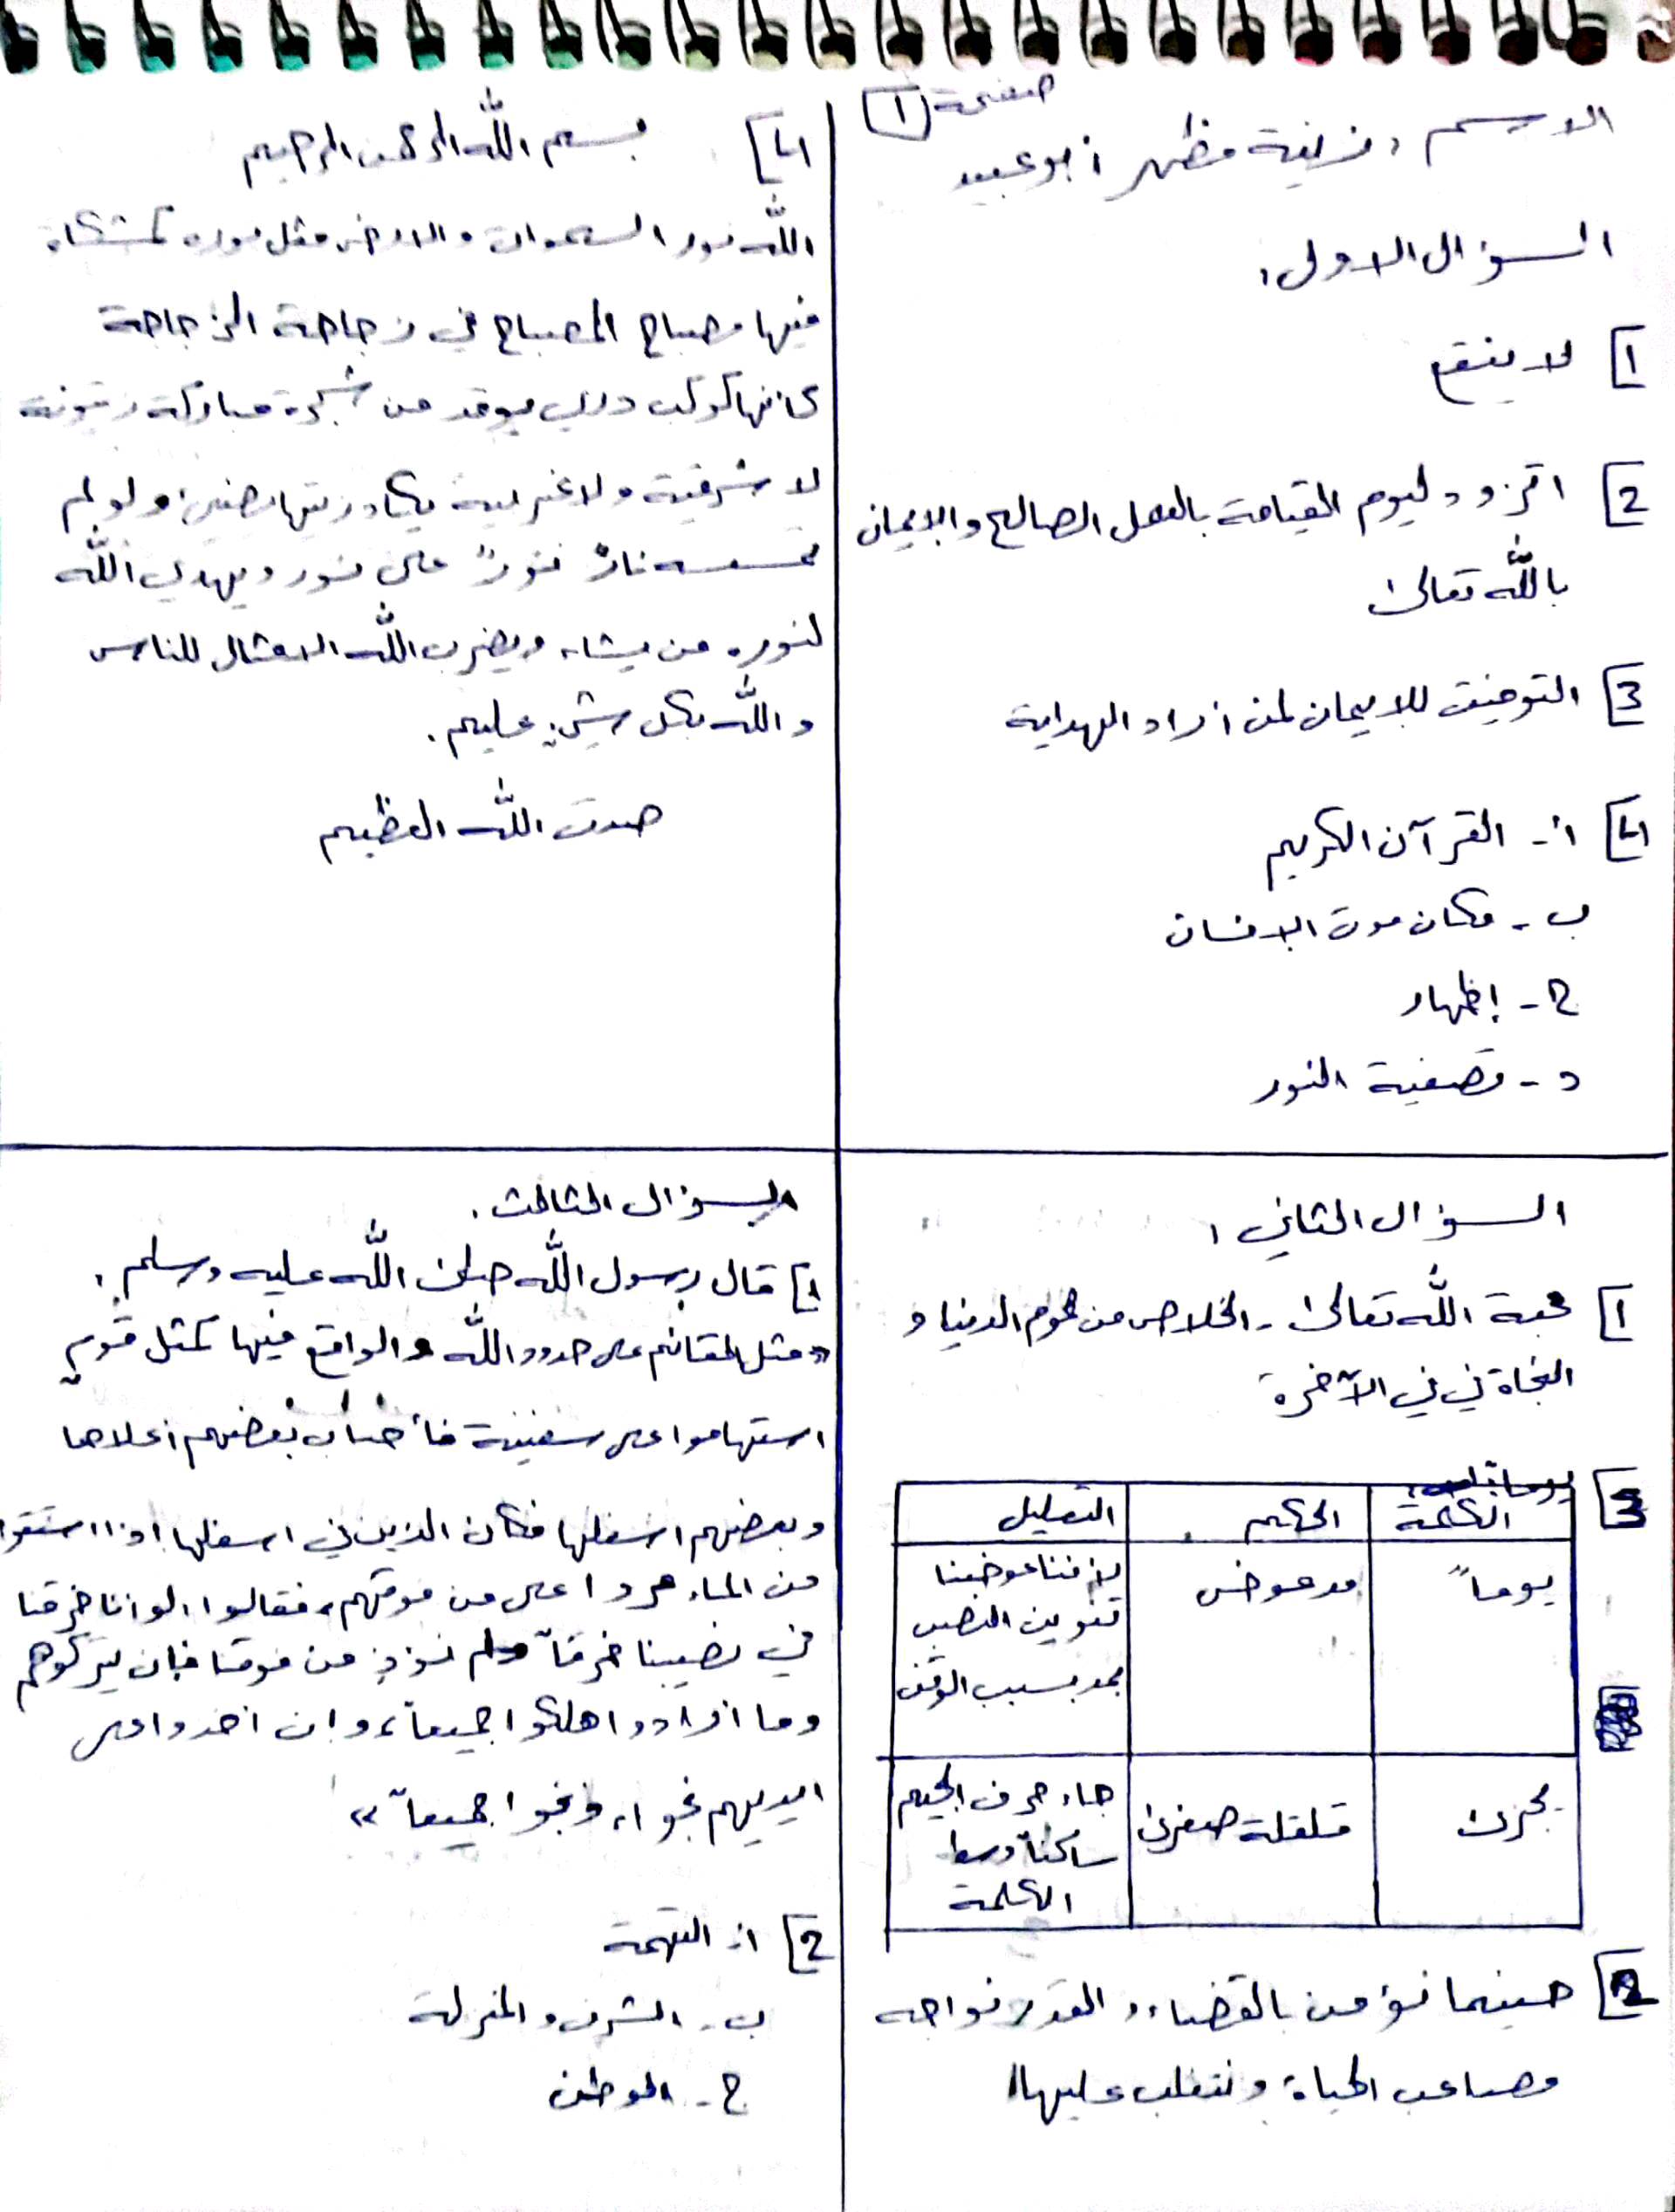 صفحة 1
الاسم : مظهر أبو عبيد
السؤال الاول :
1] لا ينفع
2] اتزود ليوم القيامة بالعمل الصالح والإيمان
بالله تعالى
3] التوفيق للإيمان لمن أراد الهداية
4] أ - القرآن الكريم
ب - مكان موت الإنسان
ج - إظهار
د - تصفية النور
4] بسم الله الرحمن الرحيم
الله نور السموات والارض مثل نوره كمشكاة
فيها مصباح المصباح في زجاجة الزجاجة
كأنها كوكب دري يوقد من شجرة مباركة زيتونة
لا شرقية ولا غربية يكاد زيتها يضيئ ولو لم
تمسسه نارٌ نورٌ على نور ويهدي الله
لنوره من يشاء ويضرب الله الامثال للناس
والله بكل شيء عليم .
صدق الله العظيم
السؤال الثاني :
1] محبة الله تعالى - الخلاص من هموم الدنيا و
النجاة في في الآخرة
3]
الكلمة | الحكم | التعليل
يوماً | مد عوض | لأننا عوضنا
تنوين النصب
بمد بسبب الوقف
تجزى | قلقلة صغرى | جاء حرف الجيم
ساكناً وسط
الكلمة
2] حينما نؤمن بالقضاء والقدر نواجه
مصاعب الحياة ونتغلب عليها
السؤال الثالث :
1] قال رسول الله صلى الله عليه وسلم :
" مثل القائم على حدود الله والواقع فيها كمثل قومٍ
استهاموا على سفينة فأصاب بعضهم أعلاها
وبعضهم اسفلها فكان الذين في اسفلها اذا استقوا
من الماء مروا على من فوقهم، فقالوا لو انا خرقنا
في نصيبنا خرقاً ولم نؤذِ من فوقنا فإن يتركوهم
وما أرادوا هلكوا جميعاً، وإن أخذوا على
ايديهم نجوا، ونجوا جميعاً "
2] أ. التهمة
ب. الشرف والمنزلة
ج. الوطن